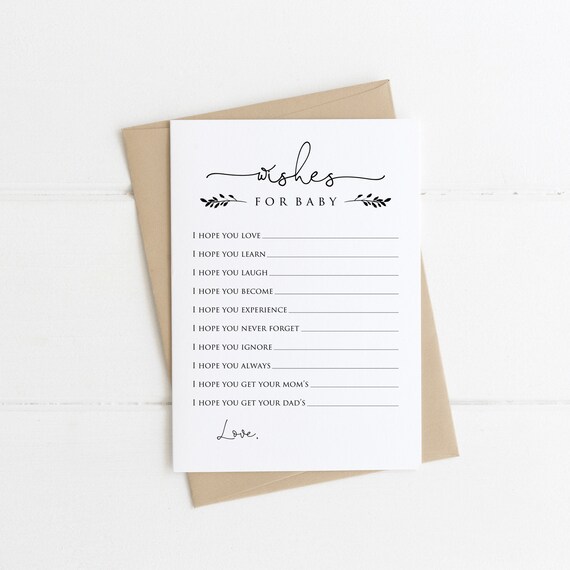 wishes
FOR BABY
I HOPE YOU LOVE
I HOPE YOU LEARN
I HOPE YOU LAUGH
I HOPE YOU BECOME
I HOPE YOU EXPERIENCE
I HOPE YOU NEVER FORGET
I HOPE YOU IGNORE
I HOPE YOU ALWAYS
I HOPE YOU GET YOUR MOM'S
I HOPE YOU GET YOUR DAD'S
Love,